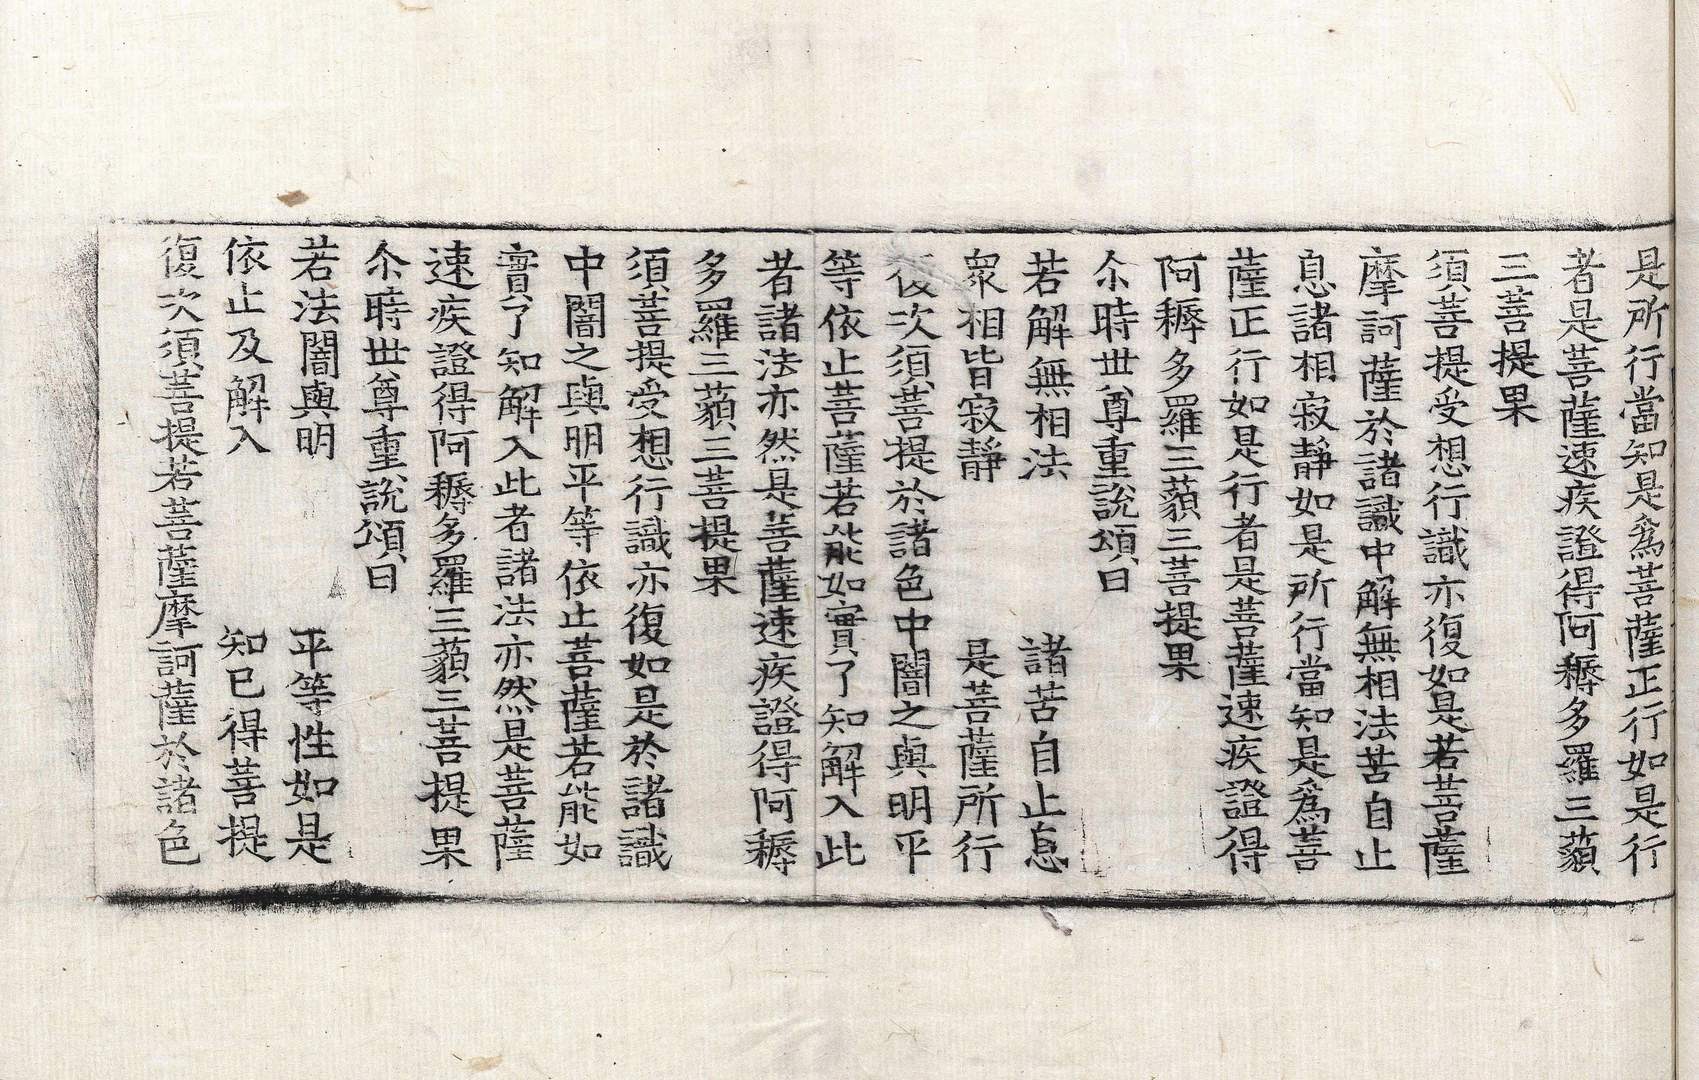 是所行當知是爲菩薩正行如是行
者是菩薩速疾證得阿耨多羅三藐
三菩提果
須菩提受想行識亦復如是若菩薩
摩訶薩於諸識中解無相法苦自止
息諸相寂靜如是所行當知是爲菩
薩正行如是行者是菩薩速疾證得
阿耨多羅三藐三菩提果
尒時世尊重說頌曰
若解無相法　諸苦自止息
衆相皆寂靜　是菩薩所行
復次須菩提於諸色中闇之與明平
等依止菩薩若能如實了知解入此
者諸法亦然是菩薩速疾證得阿耨
多羅三藐三菩提果
須菩提受想行識亦復如是於諸識
中闇之與明平等依止菩薩若能如
實了知解入此者諸法亦然是菩薩
速疾證得阿耨多羅三藐三菩提果
尒時世尊重說頌曰
若法闇與明　平等性如是
依止及解入　知已得菩提
復次須菩提若菩薩摩訶薩於諸色